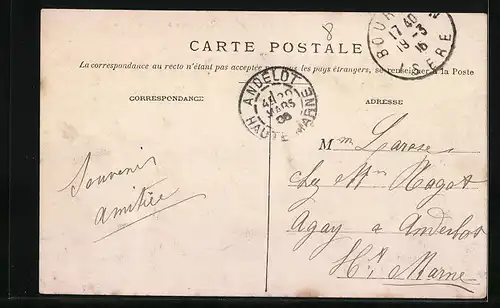 8
BOUR
17 40
19-3
16
ISERE
CARTE POSTALE
La correspondance au recto n'étant pas acceptée par tous les pays étrangers, se renseigner à la Poste
ANDELOT
MARS
06
HAUTE MARNE
CORRESPONDANCE
ADRESSE
Souvenir
amitiée
Mme Larose
chez Mr Ragot
Agay à Andelot
Hte Marne